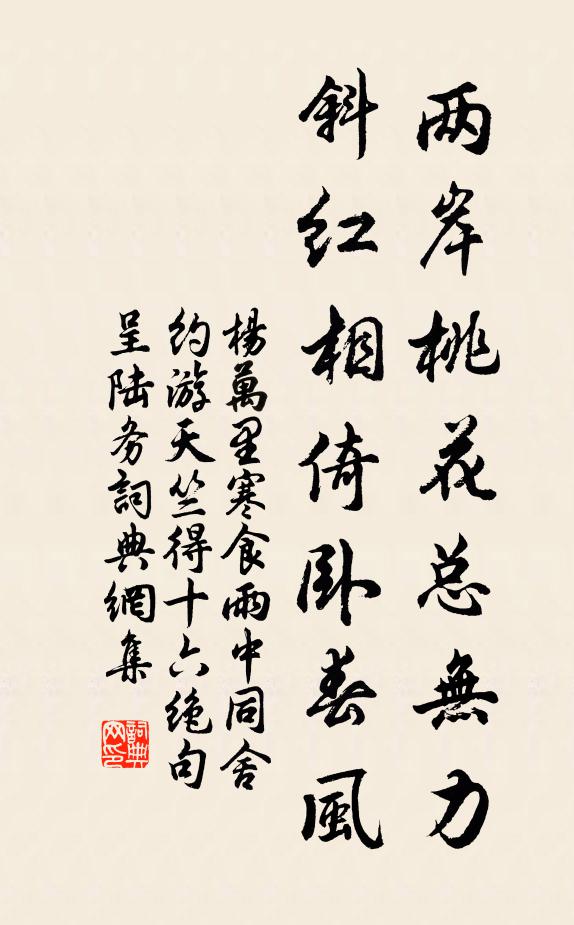 两岸桃花总無力
斜红相倚卧春風
楊萬里寒食雨中同舍
约游天竺得十六绝句
呈陆务詞典網集
詞典
网印